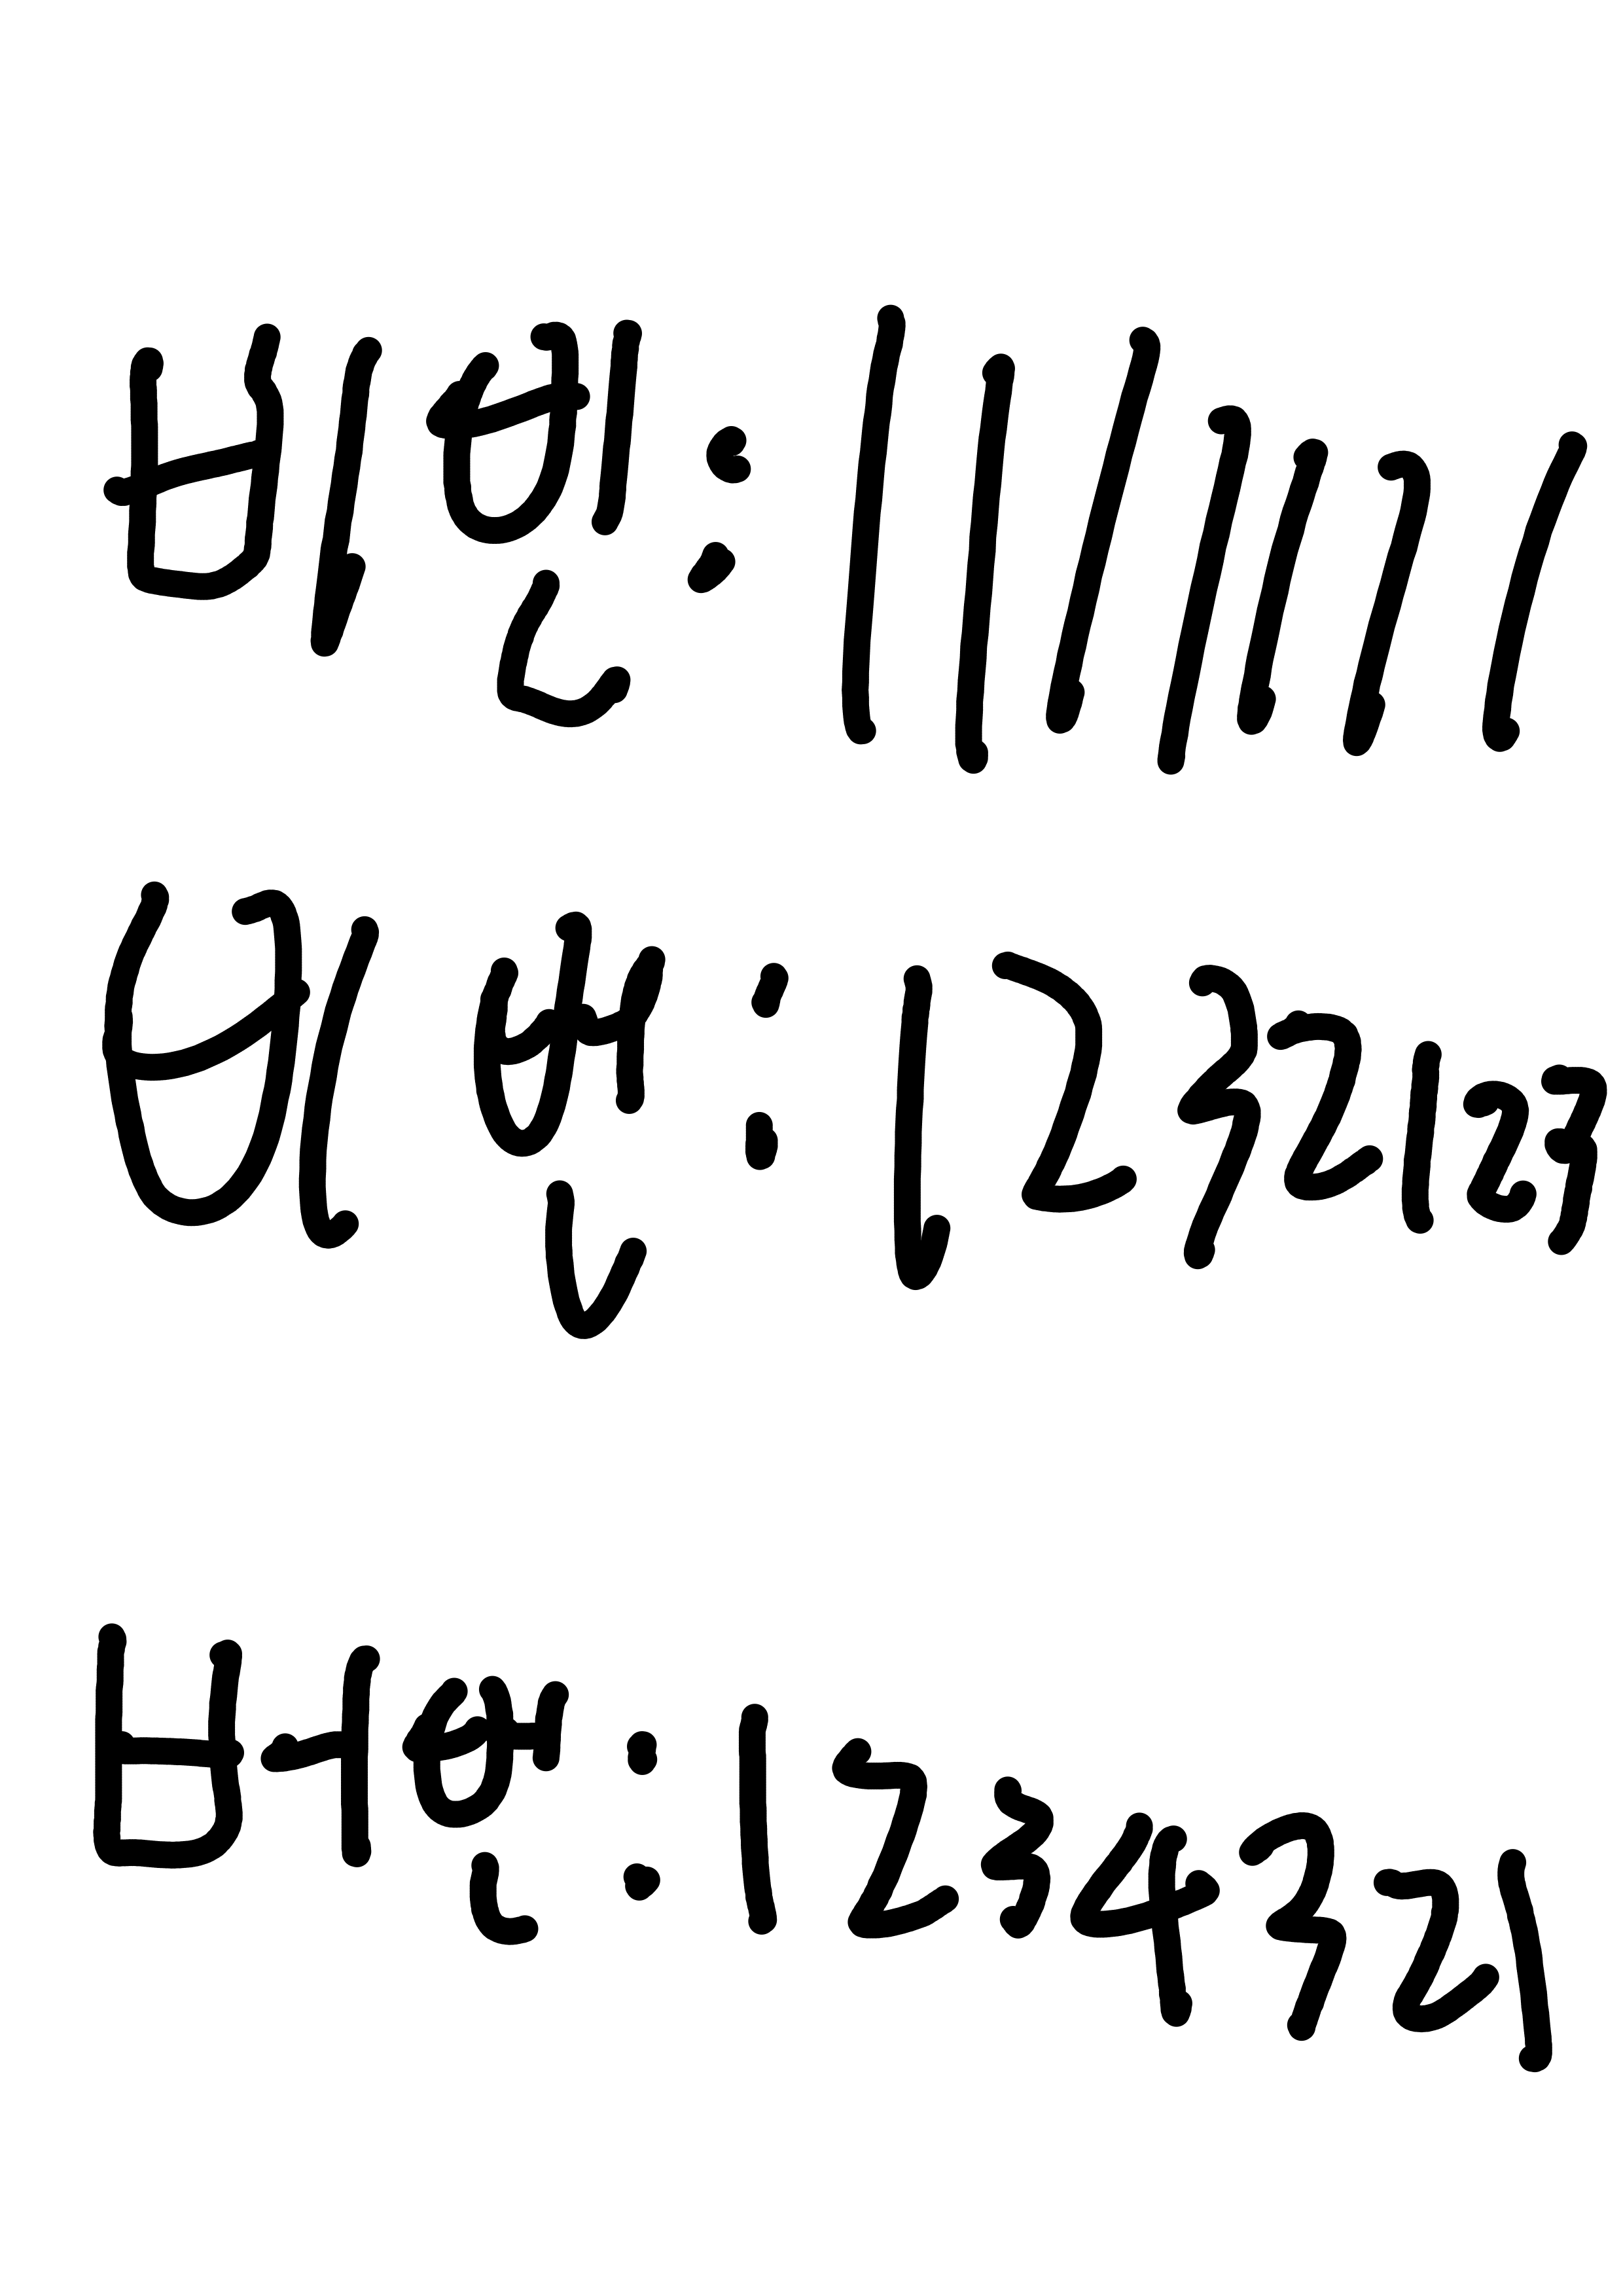 비빈: 1111111
비번: 1232123
버번: 1234321